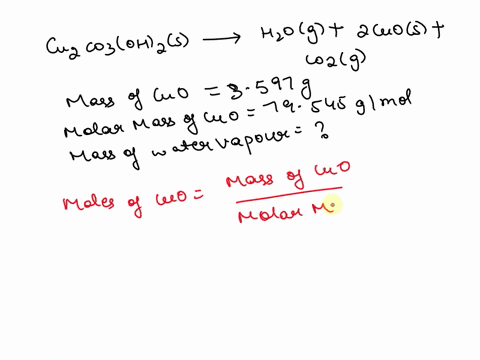 Cu2CO3(OH)2(s) ⟶ H2O(g) + 2CuO(s) +
CO2(g)
Mass of CuO = 3.597 g
Molar Mass of CuO = 79.545 g/mol
Mass of water vapour = ?
Moles of CuO = Mass of CuO
Molar M.